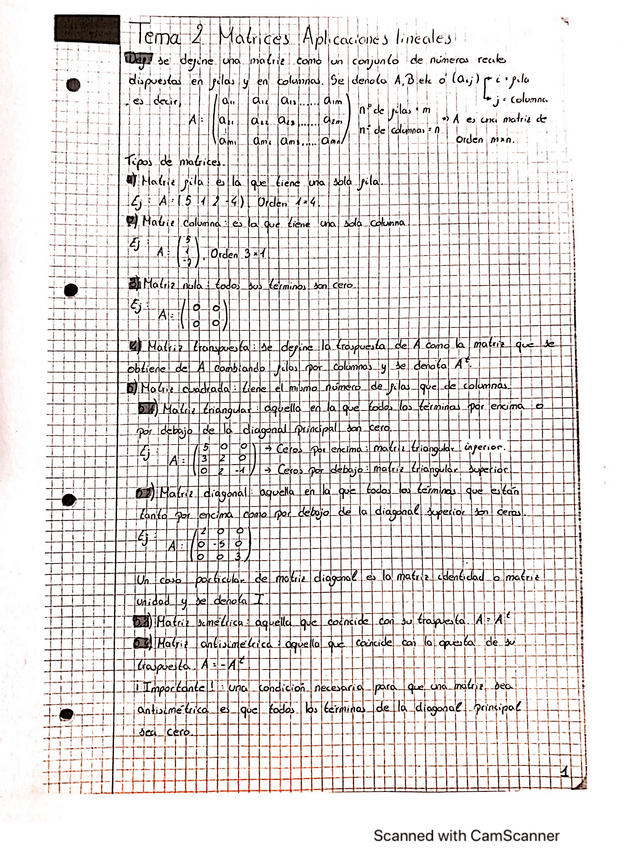 Tema 2 Matrices Aplicaciones lineales
Def: se define una matriz como un conjunto de números reales
dispuestos en filas y en columnas. Se denota A, B etc ó (aij) i = fila
j = columna
es decir,
A = ( a11 a12 a13 ...... a1m
a21 a22 a23 ...... a2m
am1 am2 am3 ..... amn )
nº de filas = m
nº de columnas = n
⇒ A es una matriz de
Orden m×n.
Tipos de matrices.
1) Matriz fila: es la que tiene una sola fila.
Ej: A = (5 1 2 -4). Orden 1×4.
2) Matriz columna: es la que tiene una sola columna
Ej: A = ( 5
1
-7 ). Orden 3×1
3) Matriz nula: todos sus términos son cero
Ej: A = ( 0 0
0 0 )
4) Matriz transpuesta: se define la traspuesta de A como la matriz que se
obtiene de A cambiando filas por columnas y se denota A^t.
5) Matriz cuadrada: tiene el mismo número de filas que de columnas.
5.1) Matriz triangular: aquella en la que todos los términos por encima o
por debajo de la diagonal principal son cero.
Ej: A = ( 5 0 0 → Ceros por encima: matriz triangular inferior.
3 2 0
0 2 -1 ) → Ceros por debajo: matriz triangular superior.
5.2) Matriz diagonal: aquella en la que todos los términos que están
tanto por encima como por debajo de la diagonal superior son ceros.
Ej: A = ( 2 0 0
0 -5 0
0 0 3 )
Un caso particular de matriz diagonal es la matriz identidad o matriz
unidad y se denota I.
5.3) Matriz simétrica: aquella que coincide con su traspuesta. A = A^t
5.4) Matriz antisimétrica: aquella que coincide con la opuesta de su
traspuesta. A = -A^t
¡Importante!: una condición necesaria para que una matriz sea
antisimétrica es que todos los términos de la diagonal principal
sea cero.
1
Scanned with CamScanner